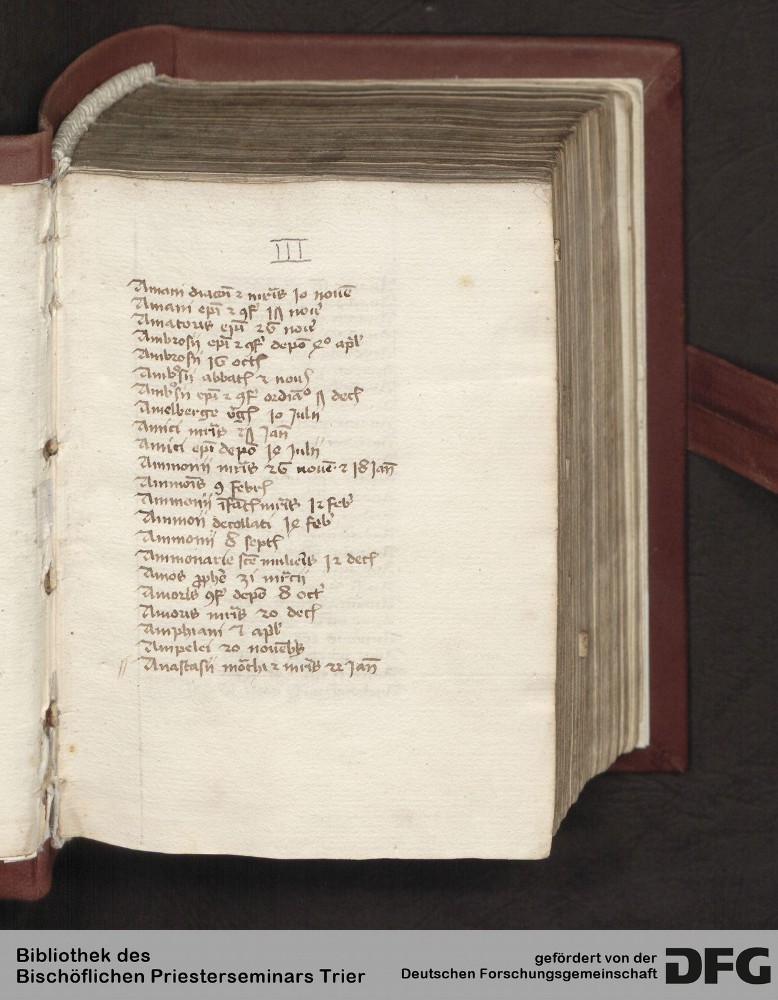 III
Amani diacōi ⁊ mr̄is 10 nouē
Amani ep̄i ⁊ ꝯf 18 nou
Amatoris ep̄i 26 nou
Ambrosii ep̄i ⁊ ꝯf depō 4° apl
Ambrosii 16 oct
Ambrosii abbat 2 nou
Ambrosii ep̄i ⁊ ꝯf ordiā° dec
Amelberge v̄g 10 Julii
Amici mr̄is Jan̄
Amici ep̄i depō 14 Julii
Ammonii mr̄is 26 nouē ⁊ 18 Jan̄
Ammōis 9 febr
Ammonii īfāt mr̄is 12 feb
Ammōii decollati 14 feb
Ammonii 8 sept
Ammonarie sc̄e mulieris 12 dec
Amos ꝓphē 31 mr̄cii
Amoris ꝯf depō 8 oct
Amoris mr̄is 20 dec
Amphiani apl
Ampelei 20 nouēb
Anastasii mōchi ⁊ mr̄is 22 Jan̄
Bibliothek des
Bischöflichen Priesterseminars Trier
gefördert von der
Deutschen Forschungsgemeinschaft
DFG